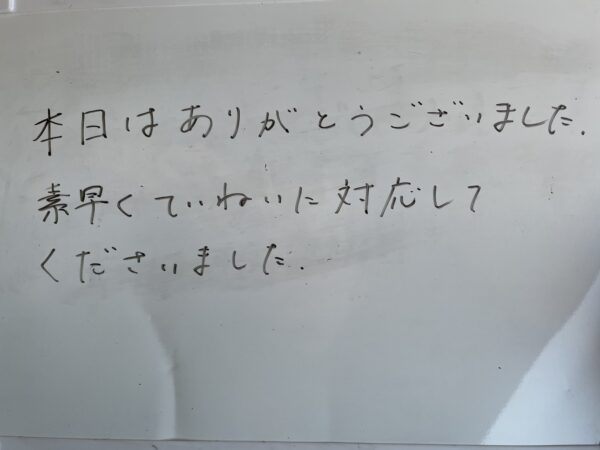 本日はありがとうございました.
素早くていねいに対応して
くださいました.